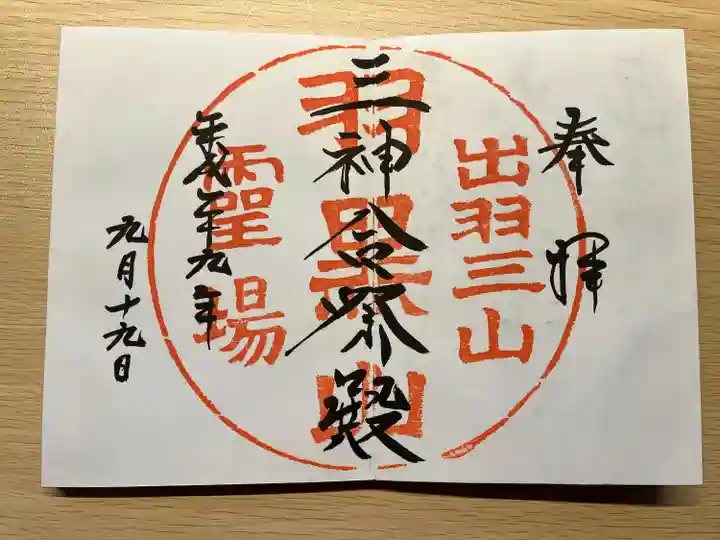 奉拝
出羽三山
三神合祭殿
羽黒山
霊場
平成廿九年
九月十九日